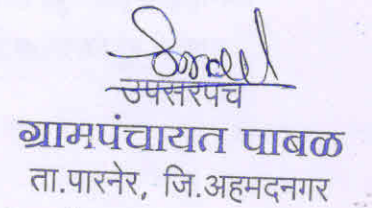 उपसरपंच
ग्रामपंचायत पाबळ
ता.पारनेर, जि.अहमदनगर